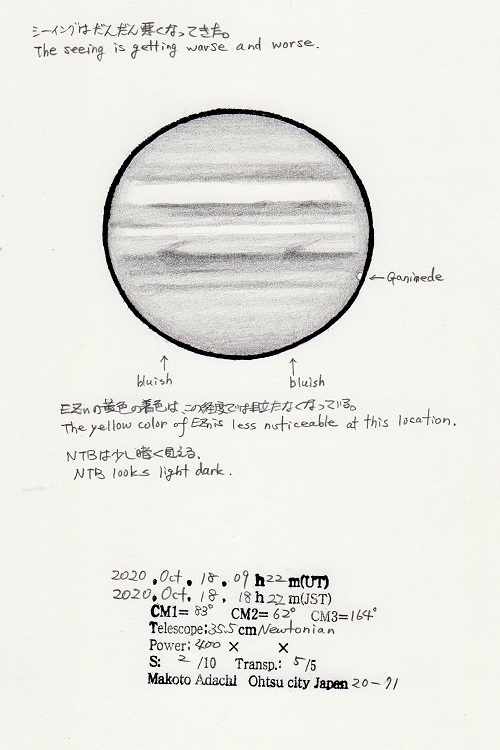 シーイングはだんだん悪くなってきた。
The seeing is getting warse and worse.
← Ganimede
↑ ↑
bluish bluish
EZnの黄色の着色は、この経度では目立たなくなっている。
The yellow color of EZn is less nuticeable at this location.
NTBは少し暗く見える.
NTB looks light dark.
2020.Oct. 18. 09 h 22 m(UT)
2020.Oct. 18. 18 h 22 m(JST)
CM1= 83° CM2= 62° CM3=164°
Telescope:35.5cm Newtonian
Power: 400 × ×
S: 2 /10 Transp.: 5/5
Makoto Adachi Ohtsu city Japan 20-71